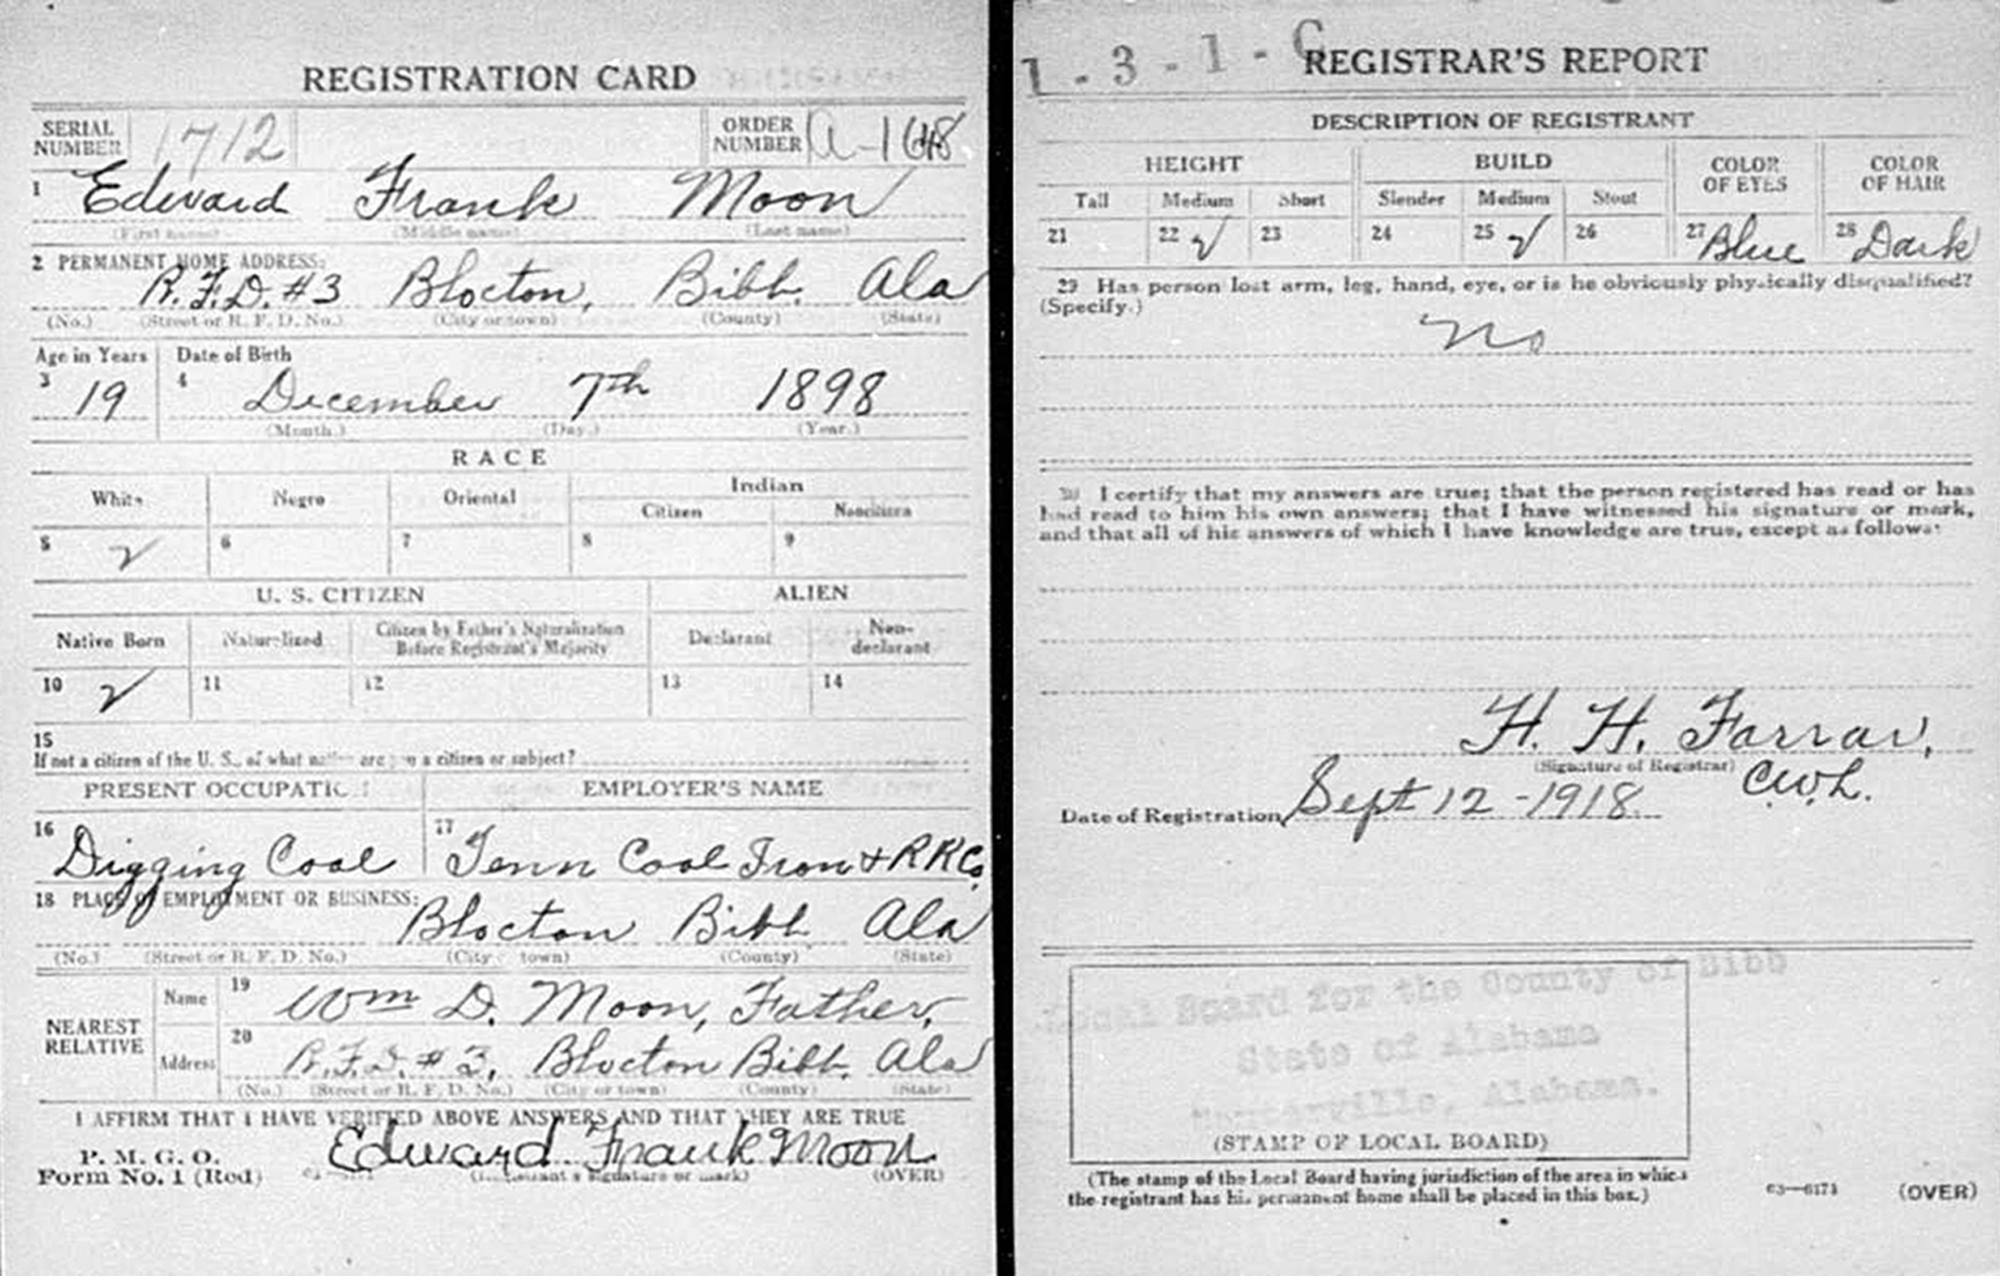 REGISTRATION CARD
SERIAL NUMBER 1712 ORDER NUMBER
1 Edward Frank Moon
(First name) (Middle name) (Last name)
2 PERMANENT HOME ADDRESS:
R.F.D. #3 Blocton, Bibb. Ala
(No.) (Street or R. F. D. No.) (City or town) (County) (State)
Age in Years Date of Birth
3 19 4 December 7th 1898
(Month.) (Day.) (Year.)
RACE
White Negro Oriental Indian
Citizen Noncitizen
5 6 7 8 9
U. S. CITIZEN ALIEN
Native Born Naturalized Citizen by Father's Naturalization Before Registrant's Majority Declarant Non-declarant
10 11 12 13 14
15
If not a citizen of the U. S., of what nation are you a citizen or subject?
PRESENT OCCUPATION EMPLOYER'S NAME
16 Digging Coal 17 Tenn Coal Iron & RR Co.
18 PLACE OF EMPLOYMENT OR BUSINESS:
Blocton Bibb Ala
(No.) (Street or R. F. D. No.) (City or town) (County) (State)
NEAREST RELATIVE
Name 19 Wm D. Moon, Father,
Address 20 R.F.D. #3, Blocton Bibb. Ala
(No.) (Street or R. F. D. No.) (City or town) (County) (State)
I AFFIRM THAT I HAVE VERIFIED ABOVE ANSWERS AND THAT THEY ARE TRUE
P. M. G. O.
Form No. 1 (Red) Edward Frank Moon
(Registrant's signature or mark) (OVER)
1 - 3 - 1 - C REGISTRAR'S REPORT
DESCRIPTION OF REGISTRANT
HEIGHT BUILD COLOR OF EYES COLOR OF HAIR
Tall Medium Short Slender Medium Stout
21 22 23 24 25 26 27 Blue 28 Dark
29 Has person lost arm, leg, hand, eye, or is he obviously physically disqualified?
(Specify.)
No
30 I certify that my answers are true; that the person registered has read or has
had read to him his own answers; that I have witnessed his signature or mark,
and that all of his answers of which I have knowledge are true, except as follows:
H. H. Farrar,
(Signature of Registrar) C.W.L.
Date of Registration Sept 12 - 1918.
Local Board for the County of Bibb
State of Alabama
Alabama.
(STAMP OF LOCAL BOARD)
(The stamp of the Local Board having jurisdiction of the area in which
the registrant has his permanent home shall be placed in this box.)
63—6171 (OVER)